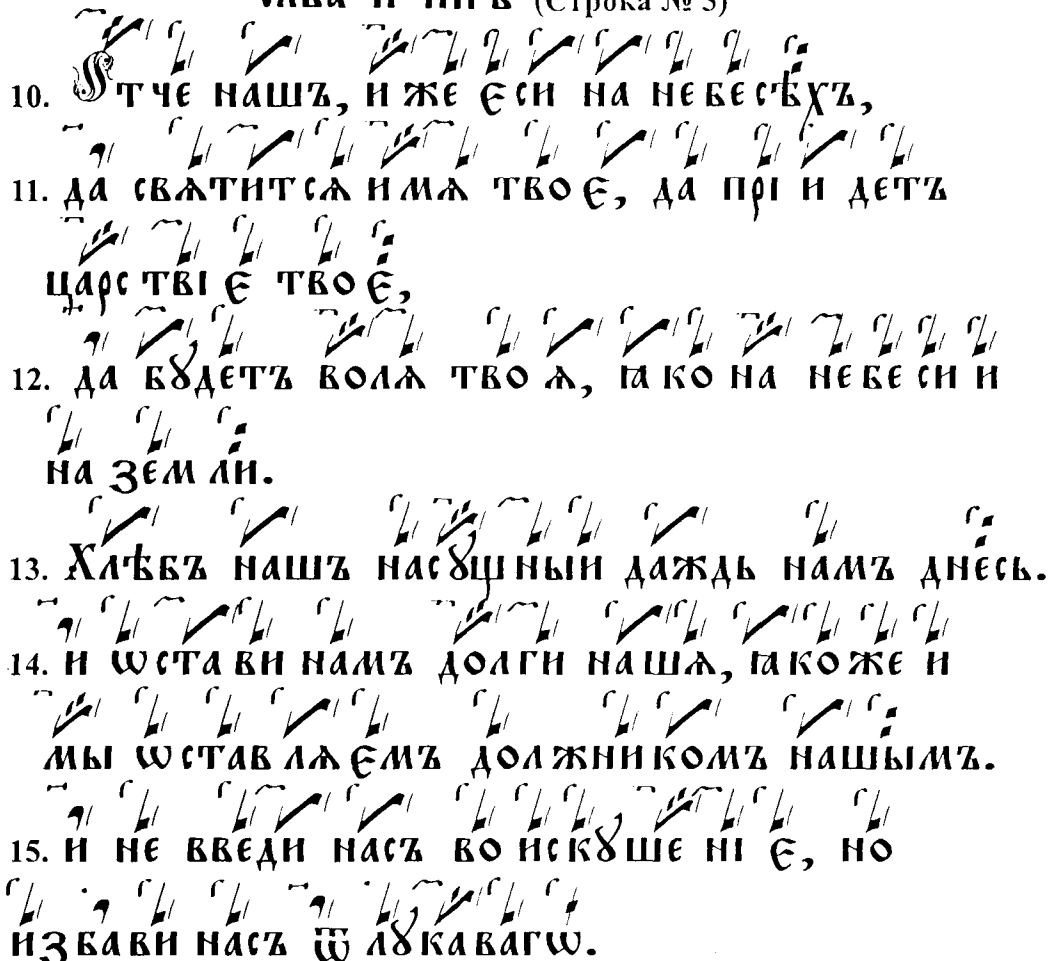 (Строка № 5)
10. Ѿтче нашъ, иже єси на небесѣхъ,
11. да свѧтитсѧ имѧ твоє, да прїидетъ
царствїє твоє,
12. да бꙋдетъ волѧ твоѧ, ꙗко на небеси и
на земли.
13. Хлѣбъ нашъ насꙋщный даждь намъ днесь.
14. и ѡстави намъ долги нашѧ, ꙗкоже и
мы ѡставлѧємъ должникомъ нашымъ.
15. и не введи насъ во искꙋшенїє, но
избави насъ ѿ лꙋкавагѡ.